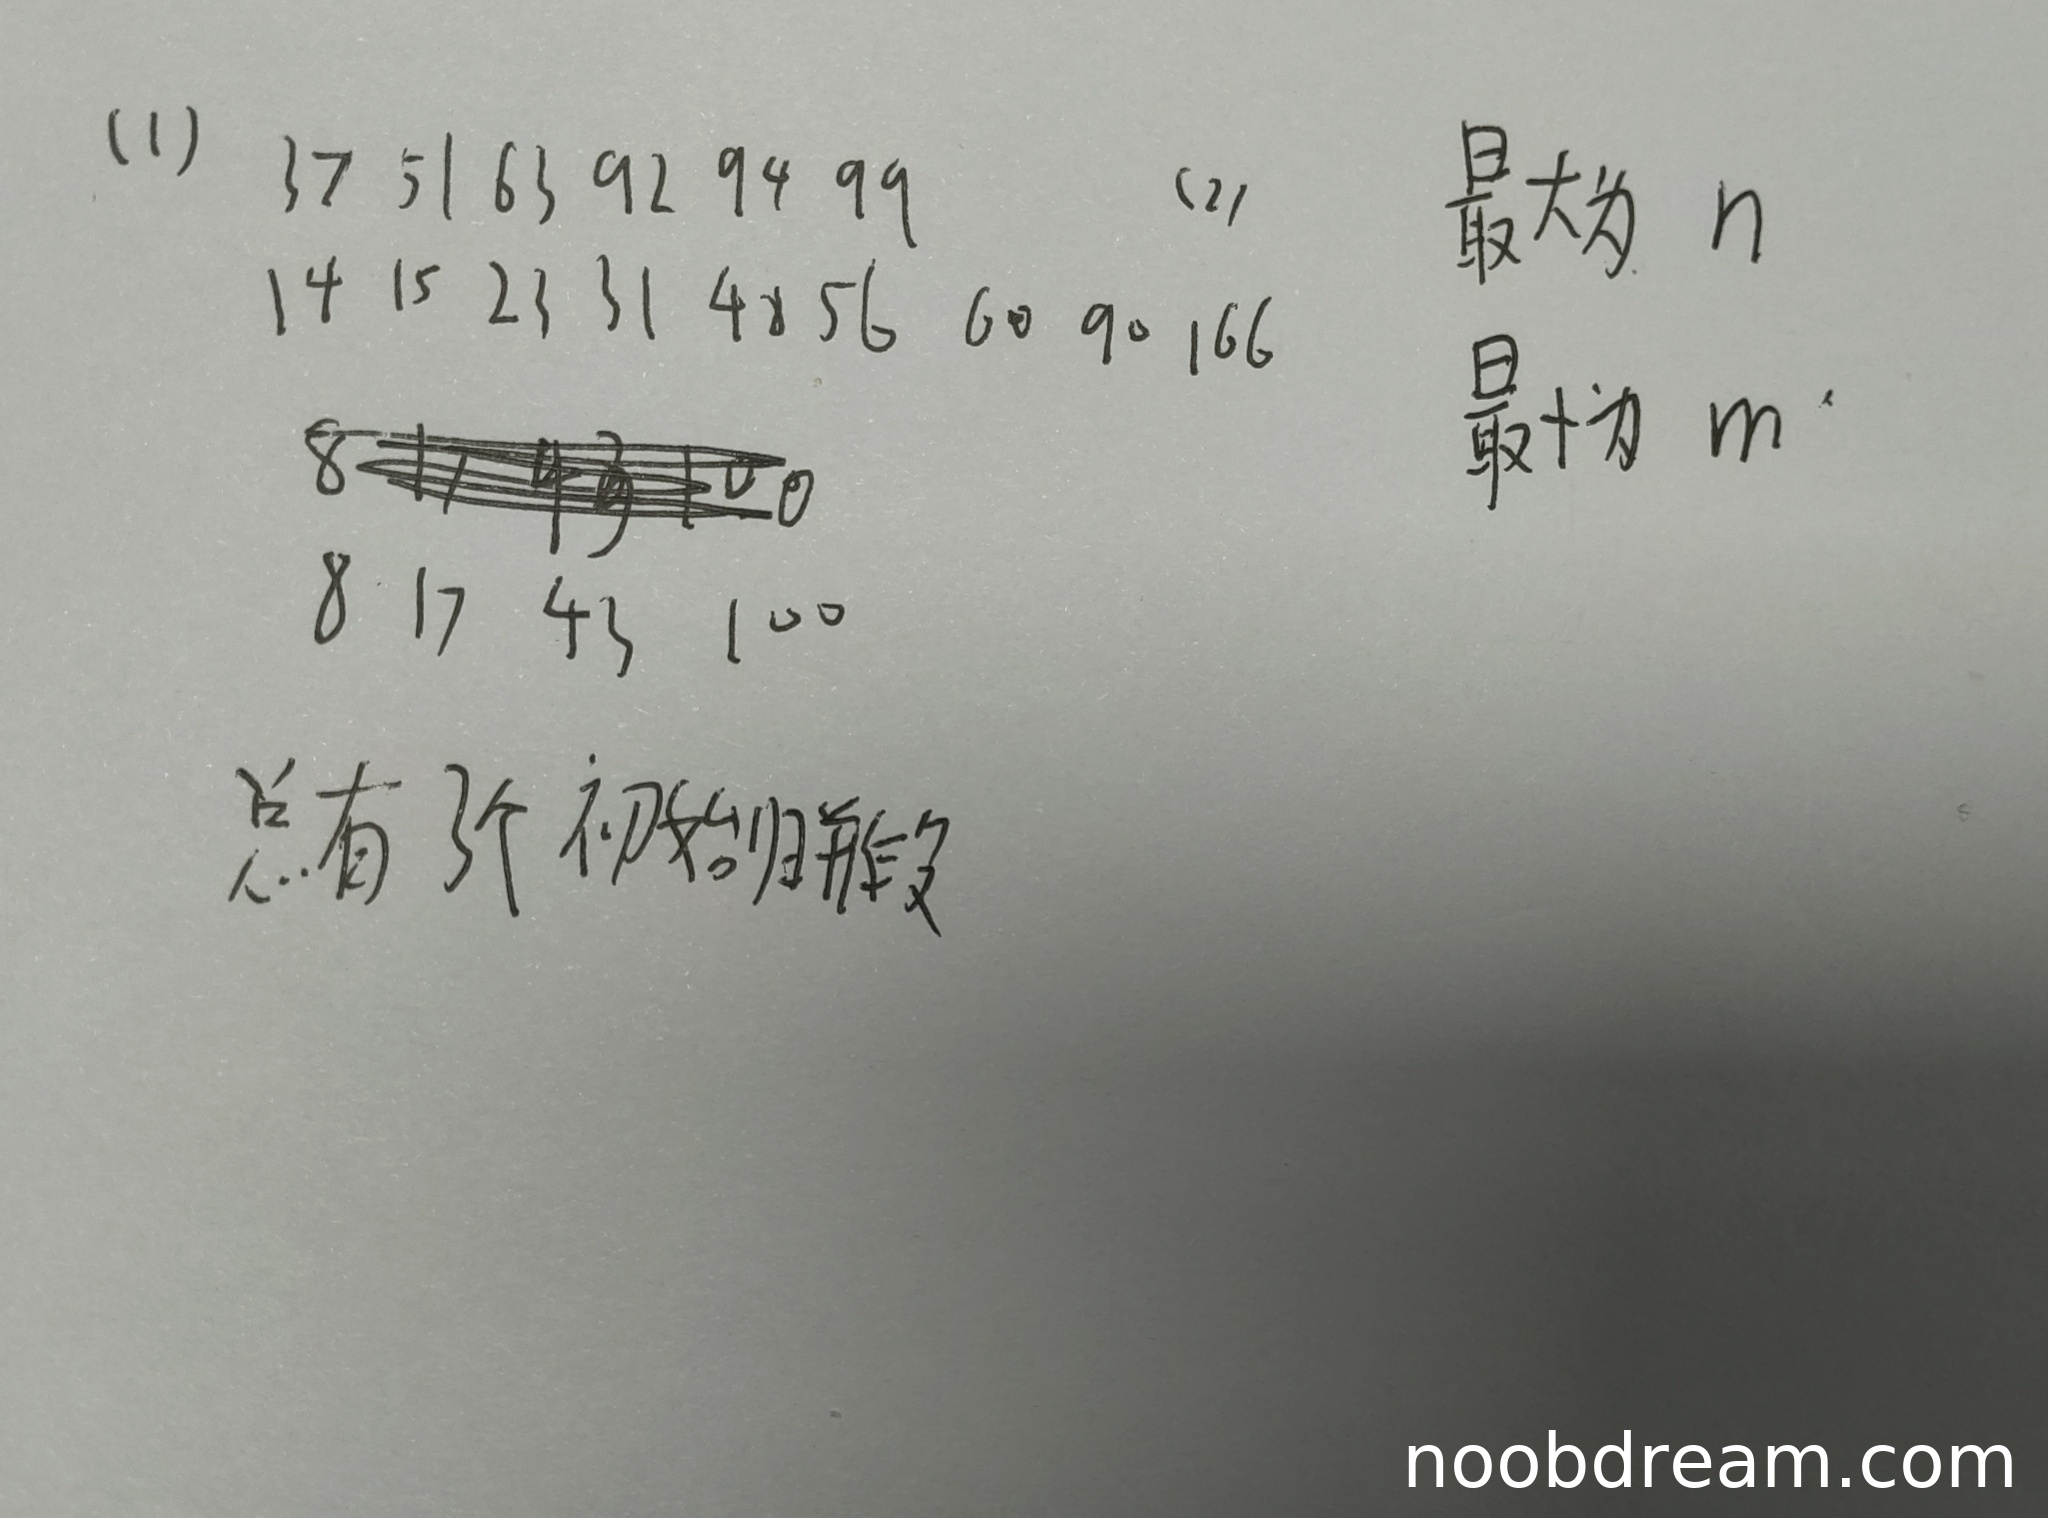 (1)
37 51 63 92 94 99
14 15 23 31 48 56 60 90 166
8 17 43 100
8 17 43 100
总有3个初始归并段
(2)
最大为 n
最小为 m
noobdream.com